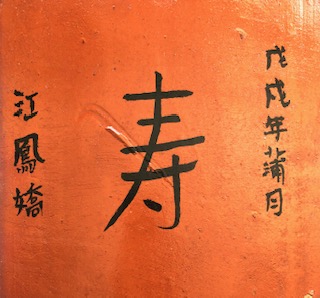 戊戌年蒲月
寿
江鳳嬌